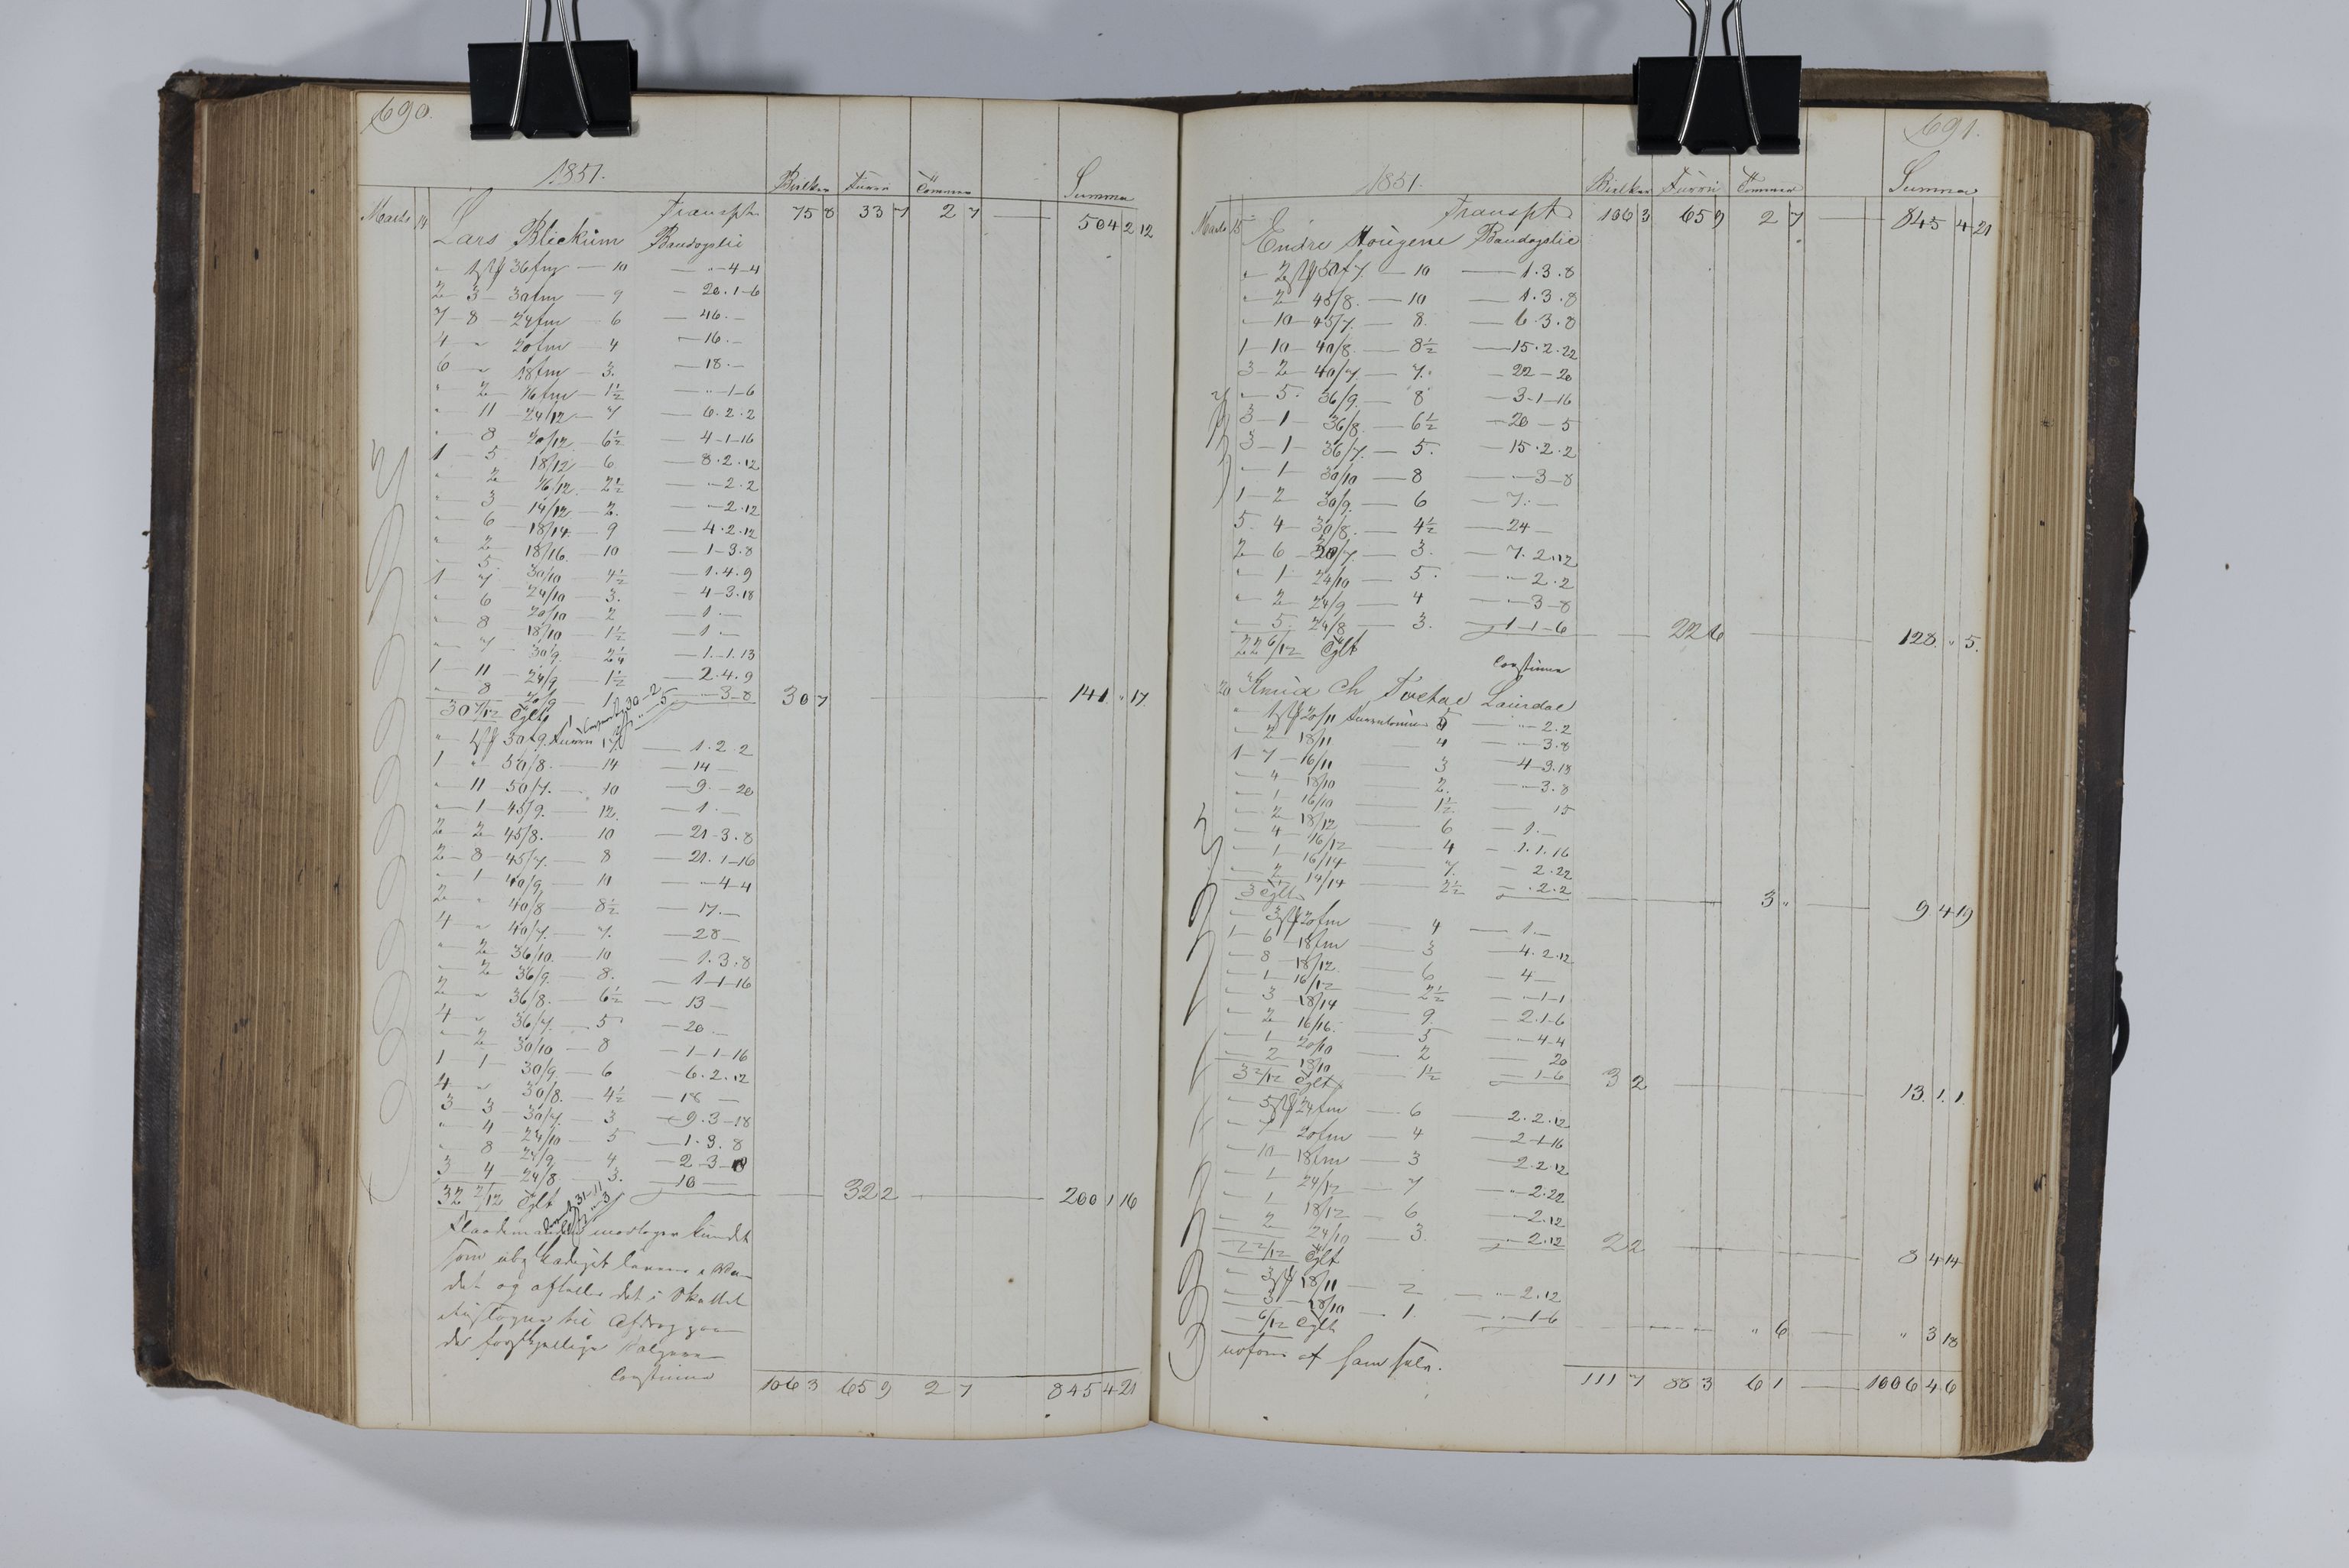 690.
1851.
Bielker Furru Tömmer Summa
Transpt 75 8 33 7 2 7 — 504 2 12
Marts 14 Lars Blickum Bandogslie
" 1 st 36 fm — 10 — " - 4 - 4
2 - 3 - 30 fm — 9 — 20 . 1 - 6
7 - 8 - 24 fm — 6 — 46 . —
4 - " 20 fm — 4 — 16 . —
6 - " 18 fm — 3 . — 18 . —
" 2 - 16 fm — 1½ — " - 1 - 6
" 11 - 24/12 — 7 — 6 . 2 . 2
" 8 - 20/12 — 6½ — 4 - 1 - 16
1 - 5 18/12 — 6 — 8 . 2 . 12
" 2 16/12 — 2½ — " - 2 . 2
" 3 - 14/12 — 2 . — " - 2 . 12
" 6 - 18/14 — 9 — 4 . 2 . 12
" 2 - 18/16 — 10 — 1 - 3 . 8
" 5 . 30/10 — 4½ — 1 . 4 . 9
1 - 7 24/10 — 3 . — 4 - 3 . 18
" 6 20/10 — 2 — 1 . —
" 8 18/10 — 1½ — 1 . —
" 7 - 30/9 — 2¼ — 1 . 1 . 13
1 - 11 - 24/9 — 1½ — 2 . 4 . 9
" 8 20/9 — 1 — " - 3 - 8
30 7/12 Tylt 30 7 — 141 " 17
" 1 st 30/9 Furru — 1 . 2 . 2
1 - " 50/8 . — 14 — 14 —
" 11 - 50/7 . — 10 — 9 . - 20
" 1 - 45/9 . — 12 . — 1 . —
2 - 2 - 45/8 . — 10 — 21 - 3 . 8
2 - 8 - 45/7 . — 8 — 21 . 1 - 16
" 1 - 40/9 . — 10 — " - 4 - 4
2 - " 40/8 — 8½ — 17 . —
4 - " 40/7 . — 7 . — 28 —
" 2 - 36/10 . — 10 — 1 . 3 . 8
" 2 - 36/9 . — 8 . — 1 - 1 - 16
2 - " 36/8 . — 6½ — 13 —
4 - " 36/7 . — 5 — 20 . —
" 2 - 30/10 — 8 — 1 - 1 - 16
1 - 1 - 30/9 — 6 — 6 . 2 . 12
4 - " 30/8 . — 4½ — 18 —
3 - 3 - 30/7 . — 3 — 9 . 3 - 18
" 4 - 24/10 — 5 — 1 . 3 . 8
" 8 24/9 — 4 — 2 - 3 -
3 - 4 24/8 — 3 . — 10 —
32 2/12 Tylt 32 2 — 200 1 16
som
det og det i Skattet
til Afdrag
de forskjellige
106 3 65 9 2 7 845 4 21
691.
1851.
Bielker Furru Tömmer Summa
Transpt 106 3 65 9 2 7 — 845 4 21
Marts 15 Endre Hougene Bandogslie
" 2 st 50/7 . — 10 — 1 . 3 . 8
" 2 - 45/8 . — 10 — 1 . 3 . 8
" 10 - 45/7 . — 8 . — 6 . 3 . 8
1 - 10 - 40/8 . — 8½ — 15 . 2 . 22
3 - 2 - 40/7 . — 7 . — 22 - 20
" 5 . 36/9 . — 8 — 3 - 1 - 16
3 - 1 - 36/8 . — 6½ — 20 - 5
3 - 1 - 36/7 . — 5 . — 15 . 2 . 2
" 1 - 30/10 — 8 — " - 3 - 8
1 - 2 - 30/9 . — 6 — 7 . —
5 . 4 - 30/8 . — 4½ — 24 —
2 - 6 - 30/7 . — 3 . — 7 . 2 . 12
" 1 - 24/10 — 5 . — " - 2 . 2
" 2 - 24/9 — 4 — " - 3 - 8
" 5 . 24/8 — 3 . — 1 - 1 - 6
22 6/12 Tylt 22 6 — 128 . " 5 .
20 Knud Ch Tvetae Laurdal
" 1 st 20/11 5 — " - 2 . 2
" 2 18/11 — 4 — " - 3 . 8
1 - 7 - 16/11 — 3 — 4 - 3 . 18
" 4 - 18/10 — 2 . — " - 3 . 8
" 1 - 16/10 — 1½ — 15
" 2 - 18/12 — 6 — 1 . —
" 4 - 16/12 — 4 — 1 . 1 . 16
" 1 - 16/14 — 7 . — 2 . 22
" 2 14/14 — 2½ — . 2 . 2
3 Tylt 3 " — 9 4 19
" 3 st 20 fm — 4 — 1 . —
1 - 6 - 18 fm — 3 — 4 . 2 . 12
" 8 - 18/12 — 6 — 4 —
" 1 - 16/12 — 2½ — " - 1 - 1
" 3 - 18/14 — 9 . — 2 . 1 - 6
" 2 - 16/16 . — 5 — " - 4 - 4
" 1 20/10 — 2 — 20
" 2 18/10 — 1½ — 1 - 6
3 2/12 Tylt 3 2 — 13 . 1 . 1
" 5 st 24 fm — 6 — 2 . 2 . 12
" 7 20 fm — 4 — 2 - 1 - 16
" 10 - 18 fm — 3 — 2 . 2 . 12
" 1 - 24/12 — 7 — " - 2 . 22
" 1 18/12 — 6 — " - 2 . 12
" 2 24/10 — 3 . — " - 2 . 12
2 2/12 Tylt 2 2 — 8 4 14
" 3 st 18/11 — 2 — " - 2 . 12
" 3 - 18/10 — 1 . — " - 1 - 6
6/12 Tylt " 6 — " 3 18
af ham selv .
111 7 88 3 6 1 — 1006 4 6